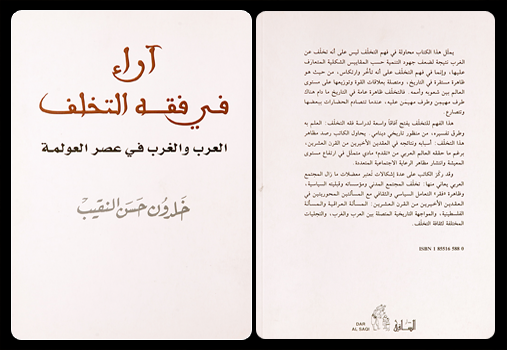 آراء
في فقه التخلف
العرب والغرب في عصر العولمة
خلدون حسن النقيب
يمثّل هذا الكتاب محاولة في فهم التخلّف ليس على أنه تخلّف عن
الغرب نتيجة لضعف جهود التنمية حسب المقاييس الشكلية المتعارف
عليها، وإنما في فهم التخلّف على أنه تأخّر وارتكاس، من حيث هو
ظاهرة مستقرة في التاريخ، ومتصلة بعلاقات القوة وتوزيعها على مستوى
العالم بين شعوبه وأممه. فالتخلّف ظاهرة عامة في التاريخ ما دام هناك
طرف مهيمن وطرف مهيمن عليه، عندما تتصادم الحضارات ببعضها
وتتصارع.
هذا الفهم للتخلّف يفتح آفاقاً واسعة لدراسة فقه التخلّف: العلم به
وطرق تفسيره، من منظور تاريخي دينامي. يحاول الكاتب رصد مظاهر
هذا التخلّف: أسبابه ونتائجه في العقدين الأخيرين من القرن العشرين،
برغم ما حققه العالم العربي من «تقدم» مادي متمثل في ارتفاع مستوى
المعيشة وانتشار مظاهر الرعاية الاجتماعية المتعددة.
وقد ركّز الكاتب على عدة إشكالات تُعتبر معضلات ما زال المجتمع
العربي يعاني منها: تخلّف المجتمع المدني ومؤسساته وقبليته السياسية،
وظاهرة «فقر» التعامل السياسي والثقافي مع المسألتين المحوريتين في
العقدين الأخيرين من القرن العشرين: المسألة العراقية والمسألة
الفلسطينية، والمواجهة التاريخية المتصلة بين العرب والغرب، والتجليات
المختلفة لثقافة التخلّف.
ISBN 1 85516 588 0
DAR
AL SAQI
الساقي